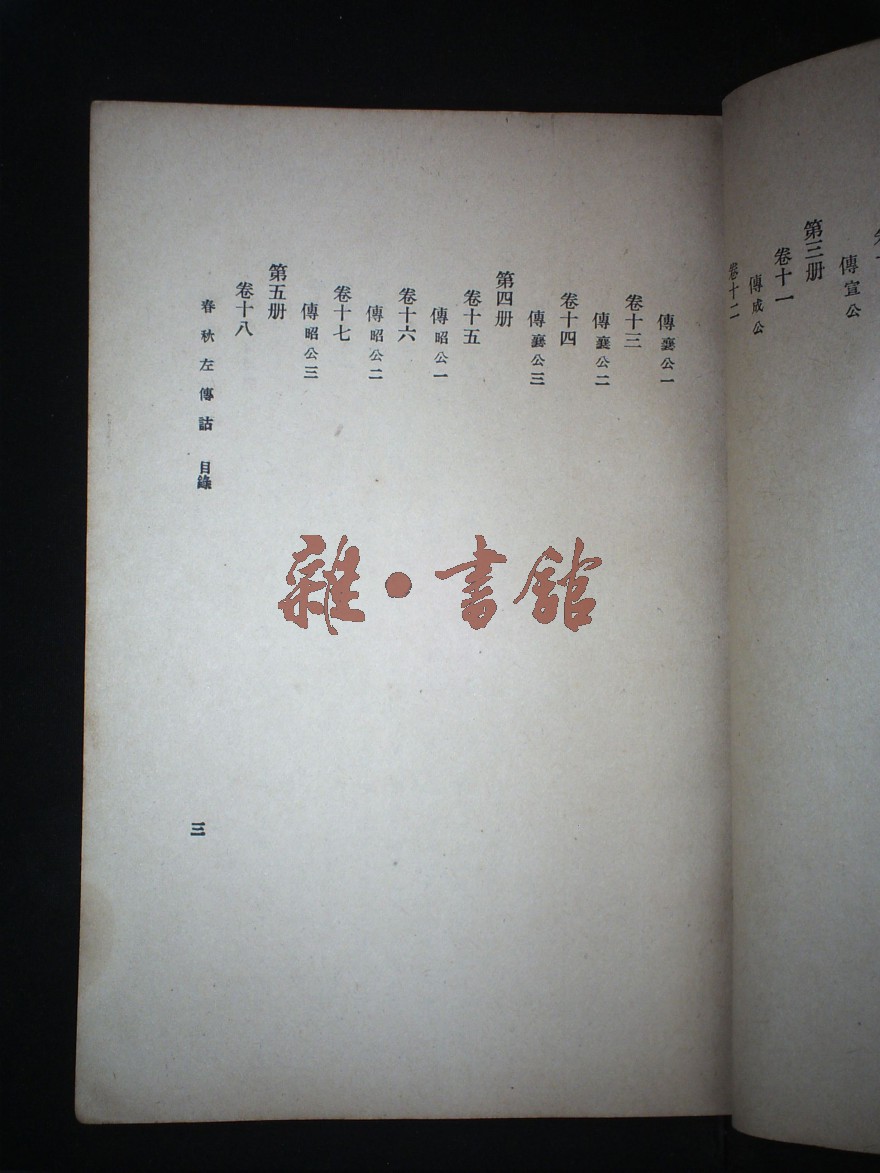 傳宣公
第三册
卷十一
傳成公
卷十二
傳襄公一
卷十三
傳襄公二
卷十四
傳襄公三
第四册
卷十五
傳昭公一
卷十六
傳昭公二
卷十七
傳昭公三
第五册
卷十八
春秋左傳詁 目錄
三
雜·書館